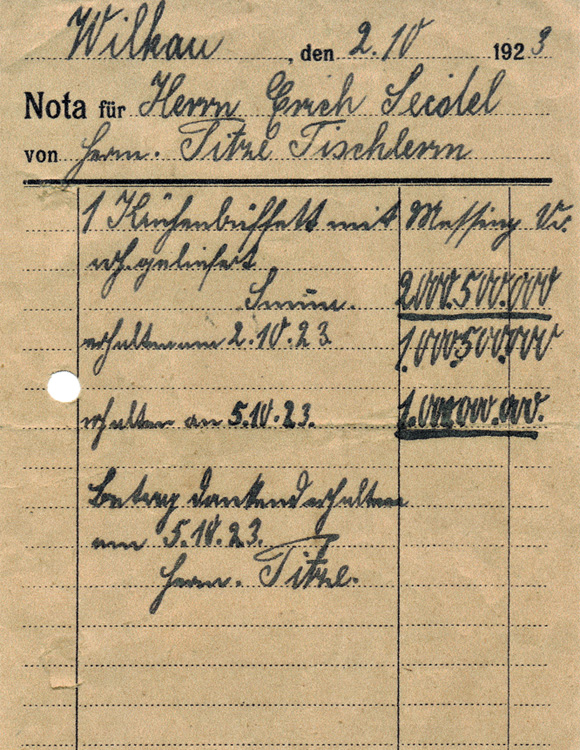 Wilkau, den 2.10 1923
Nota für Herrn Erich Seidel
von Herm. Titze Tischlerm
1 Küchenbüffett mit Messing Vr.
roh geliefert
Summe. 2000.500.000
erhalten am 2.10.23 1.000500000
erhalten am 5.10.23. 1.000.000.000.
Betrag dankend erhalten
am 5.10.23.
Herm. Titze.